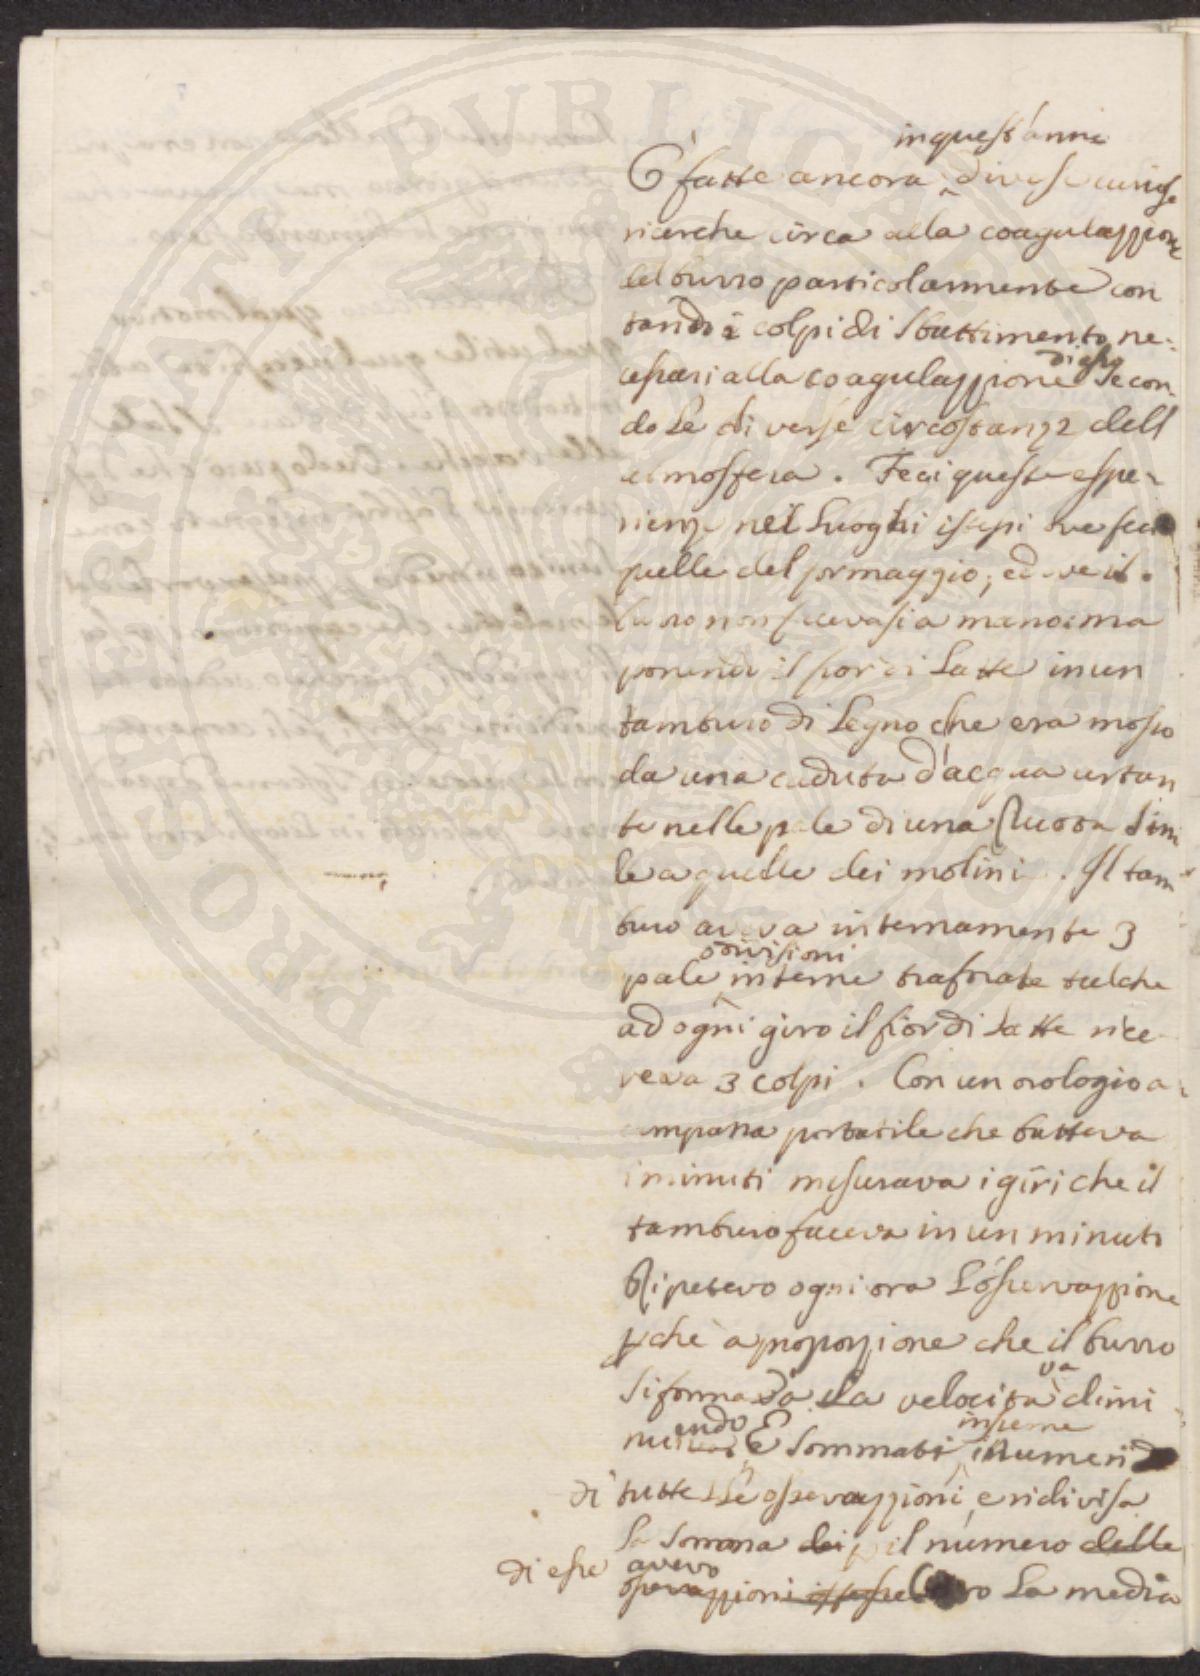 in quest'anni
O' fatte ancora diverse curiose
ricerche circa alla coagulazzione
del burro particolarmente con
tando i colpi di sbattimento ne-
cessari alla coagulazzione di esso secon
do le diverse circostanze dell
atmosfera. Feci queste espe-
rienze nei luoghi istessi ove feci
quelle del formaggio, ed ove il
burro non facevasi a mano ma
ponendo il fior di latte in un
tamburo di legno che era mosso
da una caduta d'acqua urtan
te nelle pale di una Ruota simi
le a quelle dei molini. Il tam
buro aveva internamente 3
pale o divisioni interne traforate talche
ad ogni giro il fior di latte rice
veva 3 colpi. Con un orologio a
campana portatile che batteva
i minuti misurava i giri che il
tamburo faceva in un minuto
Ripetevo ogni ora l'osservazzione
pchè a proporzione che il burro
si formava la velocità va dimi
nuendo E sommati insieme i numeri
di tutte le osservazzioni, e ridivisa
la somma p il numero delle
di esse avevo
osservazzioni la media